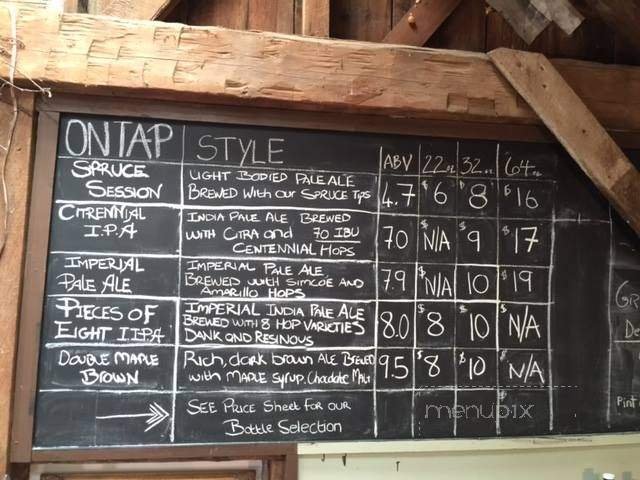 ON TAP STYLE ABV 22oz 32oz 64oz
SPRUCE SESSION
LIGHT BODIED PALE ALE
BREWED WITH OUR SPRUCE TIPS
4.7 $6 $8 $16
CITRENNIAL I.P.A
INDIA PALE ALE BREWED
WITH CITRA AND 70 IBU
CENTENNIAL HOPS
7.0 $N/A $9 $17
IMPERIAL PALE ALE
IMPERIAL PALE ALE
BREWED WITH SIMCOE AND
AMARILLO HOPS
7.9 $N/A 10 $19
PIECES OF EIGHT IIPA
IMPERIAL INDIA PALE ALE
BREWED WITH 8 HOP VARIETIES
DANK AND RESINOUS
8.0 $8 $10 $N/A
DOUBLE MAPLE BROWN
Rich, dark brown ALE BREWED
with MAPLE syrup, Chocolate Malt
9.5 $8 $10 $N/A
SEE PRICE SHEET FOR OUR
Bottle Selection
menupix
Pint